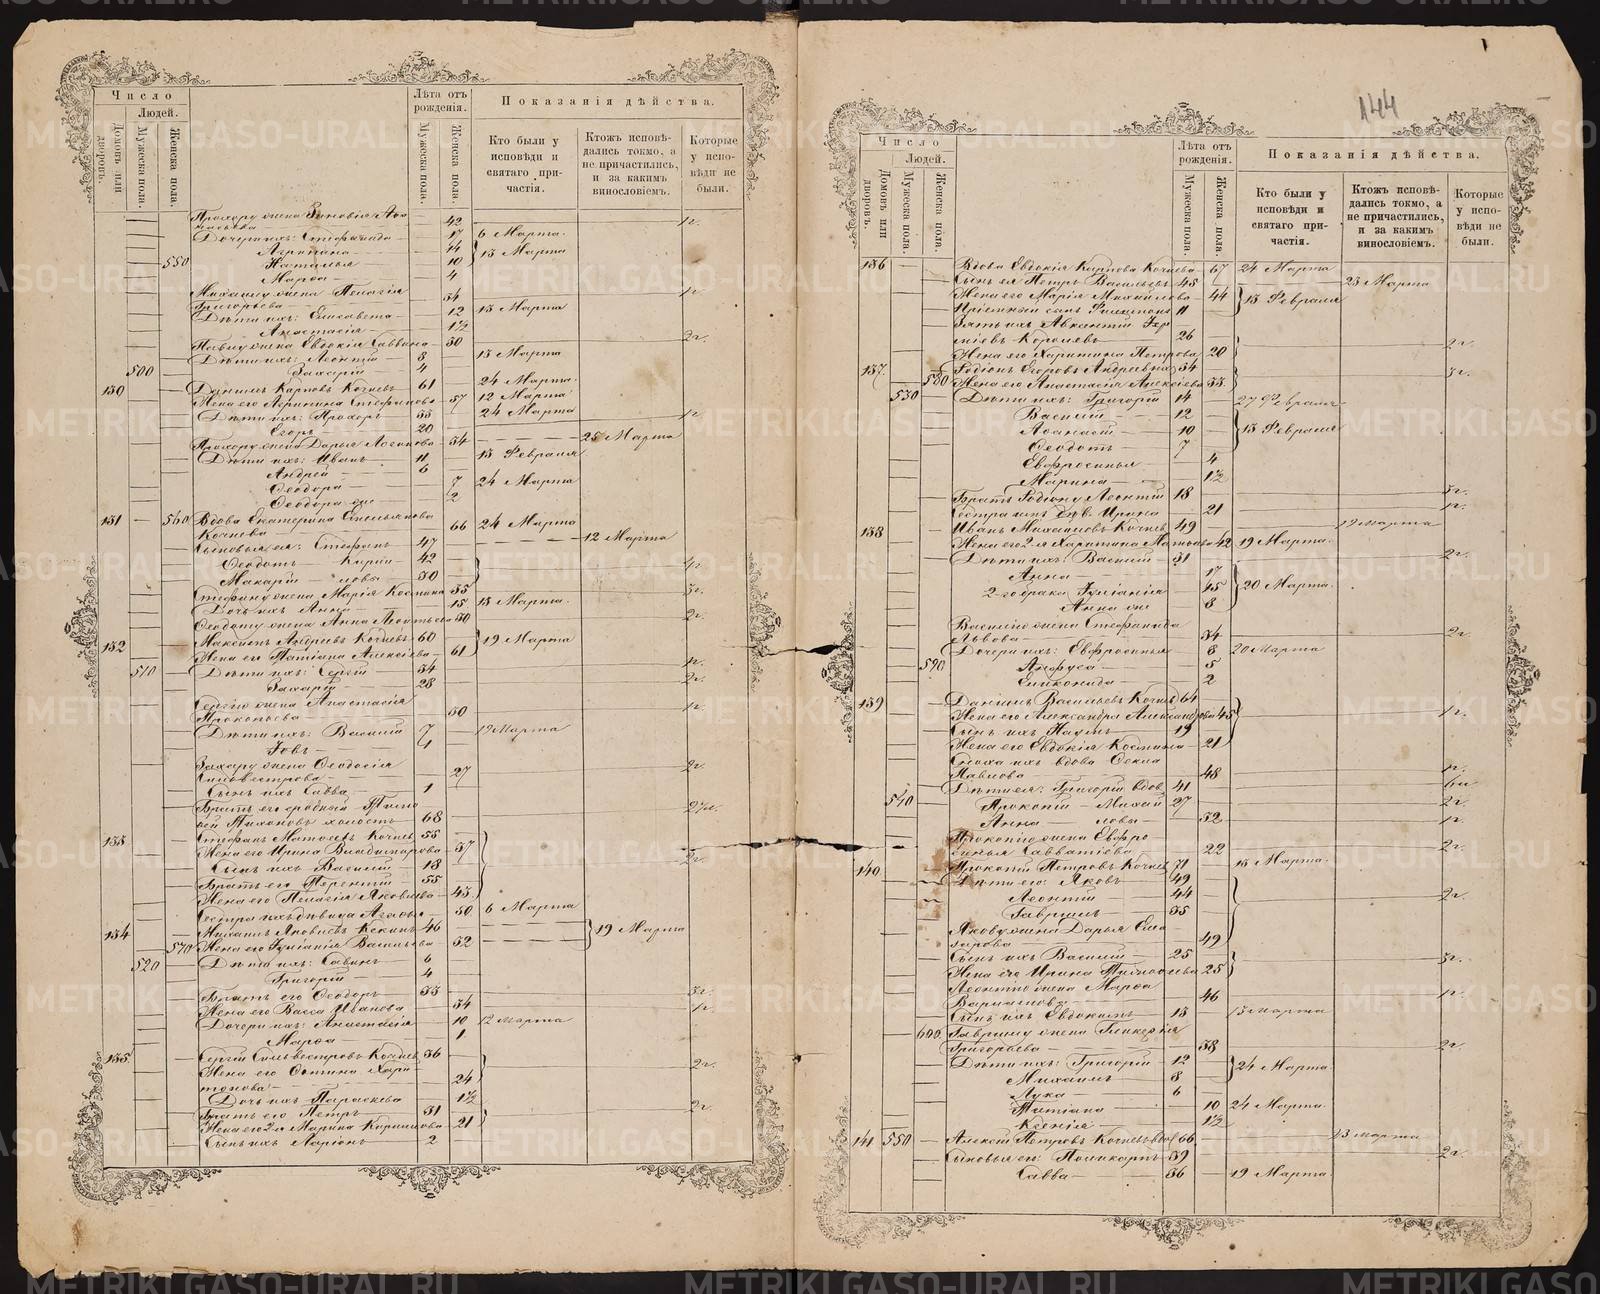 Число
Людей.
Домовъ или дворовъ.
Мужеска пола.
Женска пола.
Лѣта отъ рожденія.
Мужеска пола.
Женска пола.
Показанія дѣйства.
Кто были у исповѣди и святаго причастія.
Ктожъ исповѣдались токмо, а не причастились, и за какимъ винословіемъ.
Которые у исповѣди не были.
Прохору жена Зиновія 42
Дочери ихъ: Стефанида 17 6 Марта
Агрипина 14 13 Марта
550 Наталья 10
Марѳа 4
Михаилу жена Пелагія
Григорьева 34
Дѣти ихъ: Елисавета 12 13 Марта
Анастасія 1½
Павлу жена Евдокія Саввина 30 2г.
Дѣти ихъ: Леонтій 8 13 Марта
500 Захарій 4
130 Даніилъ Карповъ Кочневъ 61 24 Марта
Жена его Агрипина Стефанова 57 12 Марта
Дѣти ихъ: Прохоръ 33 24 Марта
Егоръ 20
Прохору жена Дарья Логинова 34 25 Марта
Дѣти ихъ: Иванъ 11 13 Февраля
Андрей 6
Ѳеодора 7 24 Марта
Ѳеодора же 2
131 560 Вдова Екатерина Емельянова
Кочнева 66 24 Марта
Сыновья ея: Стефанъ 47 12 Марта
Ѳеодотъ 42
Макарій 30
Стефану жена Марія Космина 35 3г.
Дочь ихъ Анна 15 13 Марта
Ѳеодоту жена Анна Леонтьева 30 2г.
132 Максимъ Андреевъ Кочневъ 60 19 Марта
Жена его Татіана Алексѣева 61
510 Дѣти ихъ: Сергій 34
Захарій 28 2г.
Сергію жена Анастасія
Прокопьева 30
Дѣти ихъ: Василій 7 19 Марта
Іовъ 4
Захару жена Ѳеодосія
Сильвестрова 27 2г.
Сынъ ихъ Савва 1
Братъ его сродный
Тихоновъ холостъ 68
133 Стефанъ Матвѣевъ Кочневъ 55
Жена его Ирина Владимірова 57
Сынъ ихъ Василій 18
Братъ его Терентій 55
Жена его Пелагія Яковлева 43
Сестра ихъ дѣвица Агафья 50 6 Марта
134 Михаилъ Яковлевъ 46 19 Марта
570 Жена его Іуліанія Васильева 32
520 Дѣти ихъ: Савинъ 6
Григорій 4
Братъ его Ѳеодоръ 33 3г.
Жена его Васса Иванова 34
Дочери ихъ: Анастасія 10 12 Марта
Марѳа 1
135 Сергій Сильвестровъ Кочневъ 36
Жена его Фотина Харитонова 24 2г.
Дочь ихъ Параскева 1½
Братъ его Петръ 31 2г.
Жена его 2-я Марина Кириллова 21
Сынъ ихъ Ларіонъ 2
144
Число
Людей.
Домовъ или дворовъ.
Мужеска пола.
Женска пола.
Лѣта отъ рожденія.
Мужеска пола.
Женска пола.
Показанія дѣйства.
Кто были у исповѣди и святаго причастія.
Ктожъ исповѣдались токмо, а не причастились, и за какимъ винословіемъ.
Которые у исповѣди не были.
136 Вдова Евдокія Карпова Кочнева 67 24 Марта
Сынъ ея Петръ Васильевъ 45 25 Марта
Жена его Марія Михайлова 44 13 Февраля
Пріемный сынъ Филимонъ 11
Зять ихъ Авксентій
Королевъ 26 2г.
Жена его Харитина Петрова 20
137 Родіонъ Егоровъ Андреевыхъ 34 3г.
580 Жена его Анастасія Алексѣева 33
530 Дѣти ихъ: Григорій 14 27 Февраля
Василій 12
Аѳанасій 10 13 Февраля
Ѳеодотъ 7
Евфросинья 4
Марина 1½
Братъ Родіону Леонтій 18 3г.
Сестра ихъ дѣв. Ирина 21
138 Иванъ Михайловъ Кочневъ 49 19 Марта
Жена его 2-я Харитина 42 19 Марта
Дѣти ихъ: Василій 31 2г.
Анна 17
2-го брака Іуліанія 15 20 Марта
Анна же 8
Василію жена Стефанида
Львова 34 2г.
Дочери ихъ: Евфросинья 8 20 Марта
590 Анфуса 5
2
139 Даніилъ Васильевъ Кочневъ 64
Жена его Александра Александрова 45
Сынъ ихъ Наумъ 19
Жена его Евдокія Космина 21
Сноха ихъ вдова Фекла
Павлова 48
Дѣти ея: Григорій вдов. 41
540 Прокопій 27 2г.
Анна 32
Прокопію жена Евфросинья Савватіева 22 2г.
140 Прокопій Петровъ Кочневъ 71 13 Марта
Дѣти его: Яковъ 49
Леонтій 44 2г.
Гавріилъ 35
Якову жена Дарья 49
Сынъ ихъ Василій 25
Жена его Ирина Тимофеева 25 3г.
Леонтію жена Марѳа
Варламова 46
Сынъ ихъ Евдокимъ 18 13 Марта
600 Гавріилу жена Гликерія
Григорьева 38 2г.
Дѣти ихъ: Григорій 12 24 Марта
Михаилъ 8
Лука 6
Татіана 10 24 Марта
Ксенія 1½
141 550 Алексій Петровъ Кочневъ вдов. 66 13 Марта
Сыновья его: Поликарпъ 39 2г.
Савва 36 19 Марта
METRIKI.GASO-URAL.RU